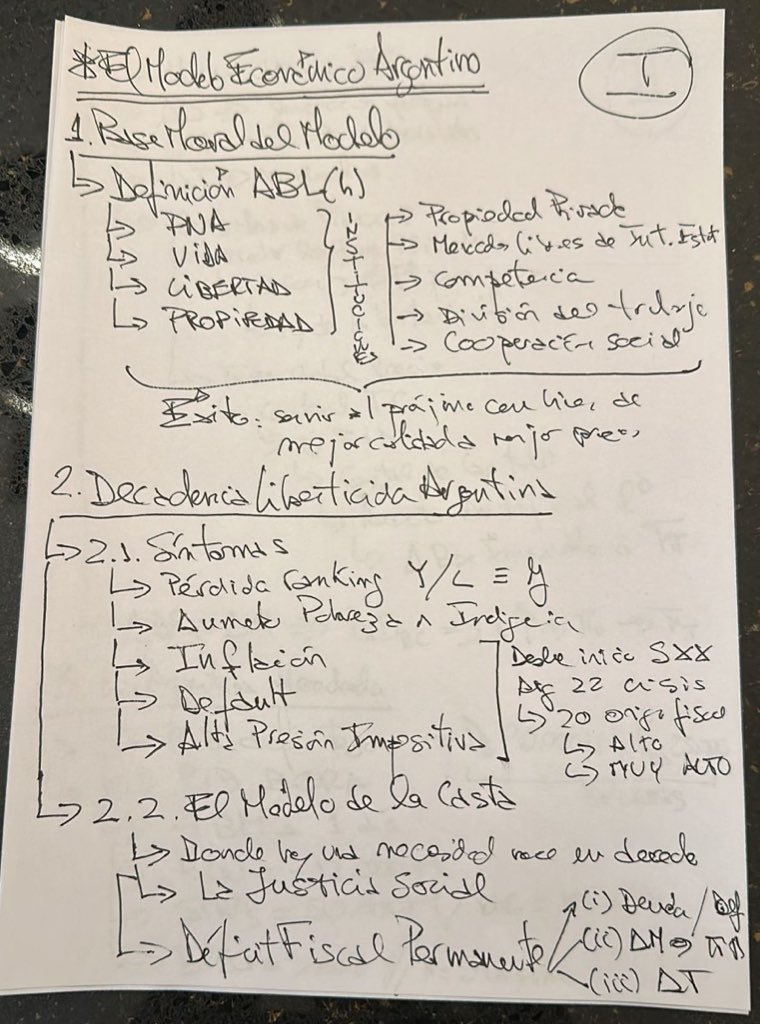 * El Modelo Económico Argentino
I
1. Base Moral del Modelo
↳ Definición ABL(h)
↳ PNA
↳ VIDA
↳ LIBERTAD
↳ PROPIEDAD
INSTITUCIONES
→ Propiedad Privada
→ Mercados libres de Int. Estat
→ Competencia
→ División del trabajo
→ Cooperación social
Éxito: servir al prójimo con bienes de
mejor calidad a mejor precio
2. Decadencia Liberticida Argentina
↳ 2.1. Síntomas
↳ Pérdida ranking Y/L ≡ y
↳ Aumento Pobreza ∧ Indigencia
↳ Inflación
↳ Default
↳ Alta Presión Impositiva
Desde inicio SXX
Arg 22 crisis
↳ 20 origen fiscal
↳ ALTO
↳ MUY ALTO
↳ 2.2. El Modelo de la Casta
↳ Donde hay una necesidad nace un derecho
↳ La Justicia Social
↳ Déficit Fiscal Permanente
(i) Deuda / Def
(ii) ΔM ⇒
(iii) ΔT